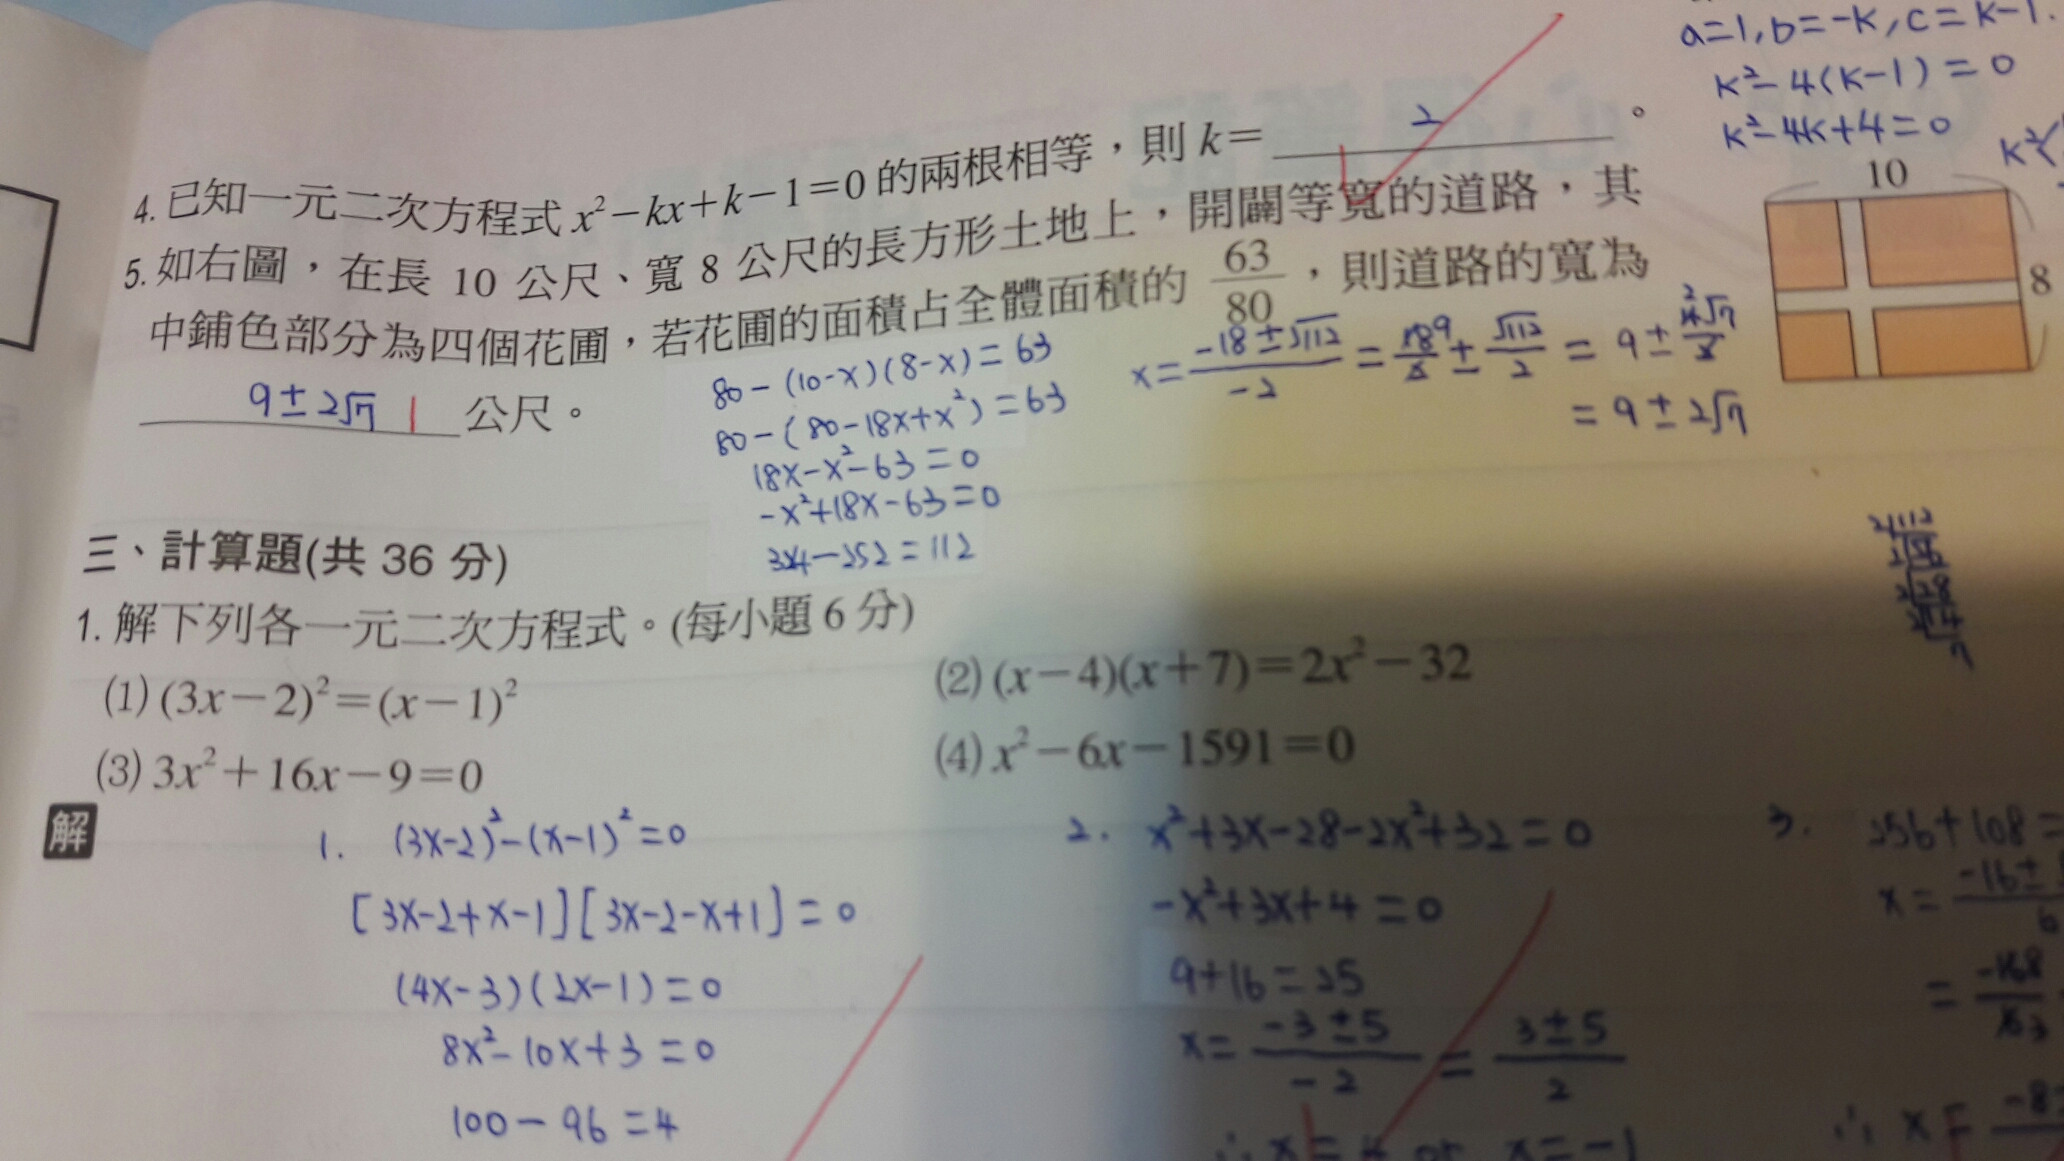 a=1,b=-k,c=k-1.
k²-4(k-1)=0
k²-4k+4=0
4. 已知一元二次方程式 x²-kx+k-1=0 的兩根相等，則 k= 2 。
5. 如右圖，在長 10 公尺、寬 8 公尺的長方形土地上，開闢等寬的道路，其
中鋪色部分為四個花圃，若花圃的面積占全體面積的 63/80，則道路的寬為
9±2√7 1 公尺。
10
8
80-(10-x)(8-x)=63
80-(80-18x+x²)=63
18x-x²-63=0
-x²+18x-63=0
324-252=112
x=(-18±√112)/-2=18/2 9±√112/2=9±4√7/2 2
=9±2√7
三、計算題(共 36 分)
1. 解下列各一元二次方程式。(每小題 6 分)
(1) (3x-2)²=(x-1)²
(2) (x-4)(x+7)=2x²-32
(3) 3x²+16x-9=0
(4) x²-6x-1591=0
解
1. (3x-2)²-(x-1)²=0
[3x-2+x-1][3x-2-x+1]=0
(4x-3)(2x-1)=0
8x²-10x+3=0
100-96=4
2. x²+3x-28-2x²+32=0
-x²+3x+4=0
9+16=25
x=(-3±5)/-2=(3±5)/2
∴x=4 or x=-1
3. 256+108=
x=-16±
6
=
∴ x=